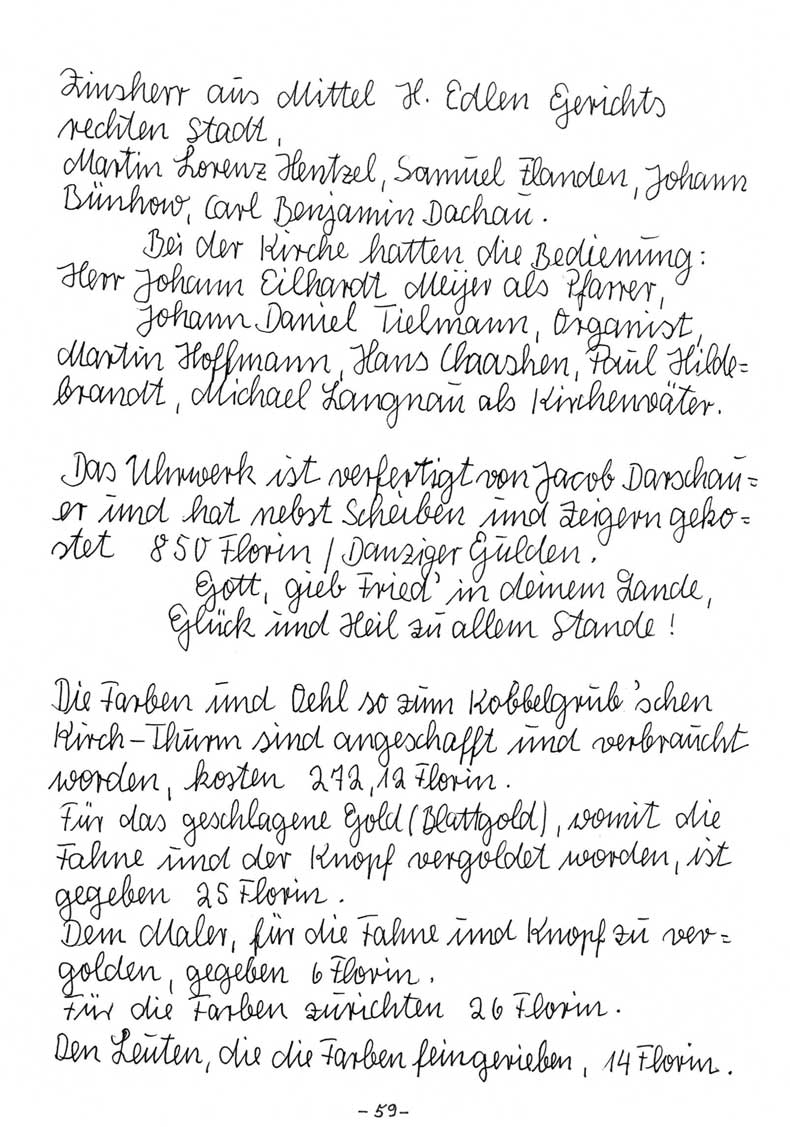 Zinsherr aus Mittel H. Edlen Gerichts
rechten Stadt,
Martin Lorenz Hentzel, Samuel Flanden, Johann
Bünhow, Carl Benjamin Dachau.
Bei der Kirche hatten die Bedienung:
Herr Johann Eilhardt Meijer als Pfarrer,
Johann Daniel Tielmann, Organist,
Martin Hoffmann, Hans Claashen, Paul Hilde=
brandt, Michael Langnau als Kirchenväter.
Das Uhrwerk ist verfertigt von Jacob Darschau=
er und hat nebst Scheiben und Zeigern geko=
stet 850 Florin / Danziger Gulden.
Gott, gieb Fried' in deinem Lande,
Glück und Heil zu allem Stande!
Die Farben und Oehl so zum Kobbelgrub'schen
Kirch-Thurm sind angeschafft und verbraucht
worden, kosten 272,12 Florin.
Für das geschlagene Gold (Blattgold), womit die
Fahne und der Knopf vergoldet worden, ist
gegeben 25 Florin.
Dem Maler, für die Fahne und Knopf zu ver=
golden, gegeben 6 Florin.
Für die Farben zurichten 26 Florin.
Den Leuten, die die Farben feingerieben, 14 Florin.
-59-